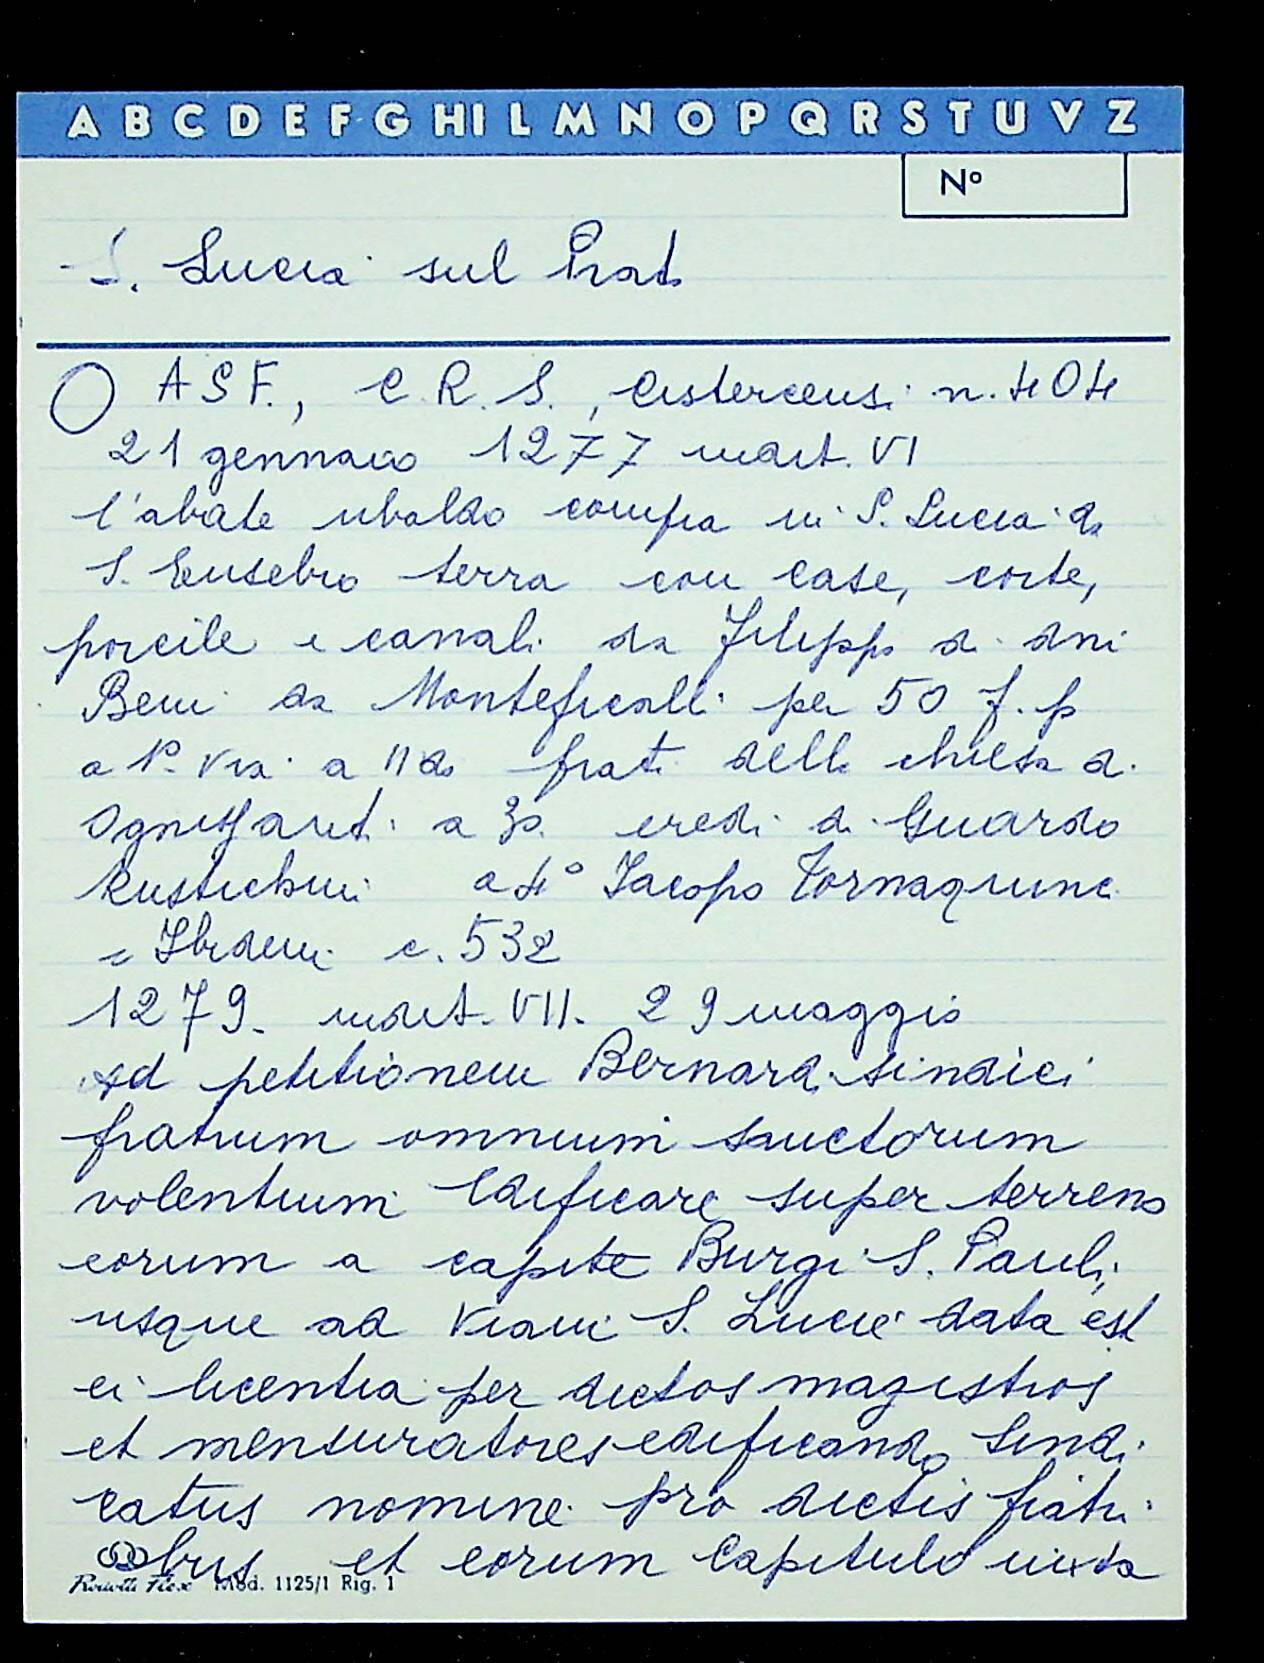 A B C D E F G H I L M N O P Q R S T U V Z
Nº
S. Lucia sul Prato
A S F., C. R. S., Cistercensi n. 404
21 gennaio 1277 indict. VI
l'abate ubaldo compra in S. Lucia di
S. Eusebio terra con case, corte,
porcile e canali da Filippo di dni
Beni da Monteficalli per 50 f. p
a 1º via a II do frati della chiesa di
Ognissanti a 3º eredi di Guardo
Rustichini a 4º Jacopo Tornaquinci
= Ibidem c. 532
1279. indict. VII. 29 maggio
ad petitionem Bernardi sindici
fratrum omnium sanctorum
volentium edificare super terreno
eorum a capite Burgi S. Pauli,
usque ad viam S. Lucie data est
ei licentia per dictos magistros
et mensuratores edificando sindi
catus nomine pro dictis fratri
bus et eorum capitulo iuxta
Mod. 1125/1 Rig. 1